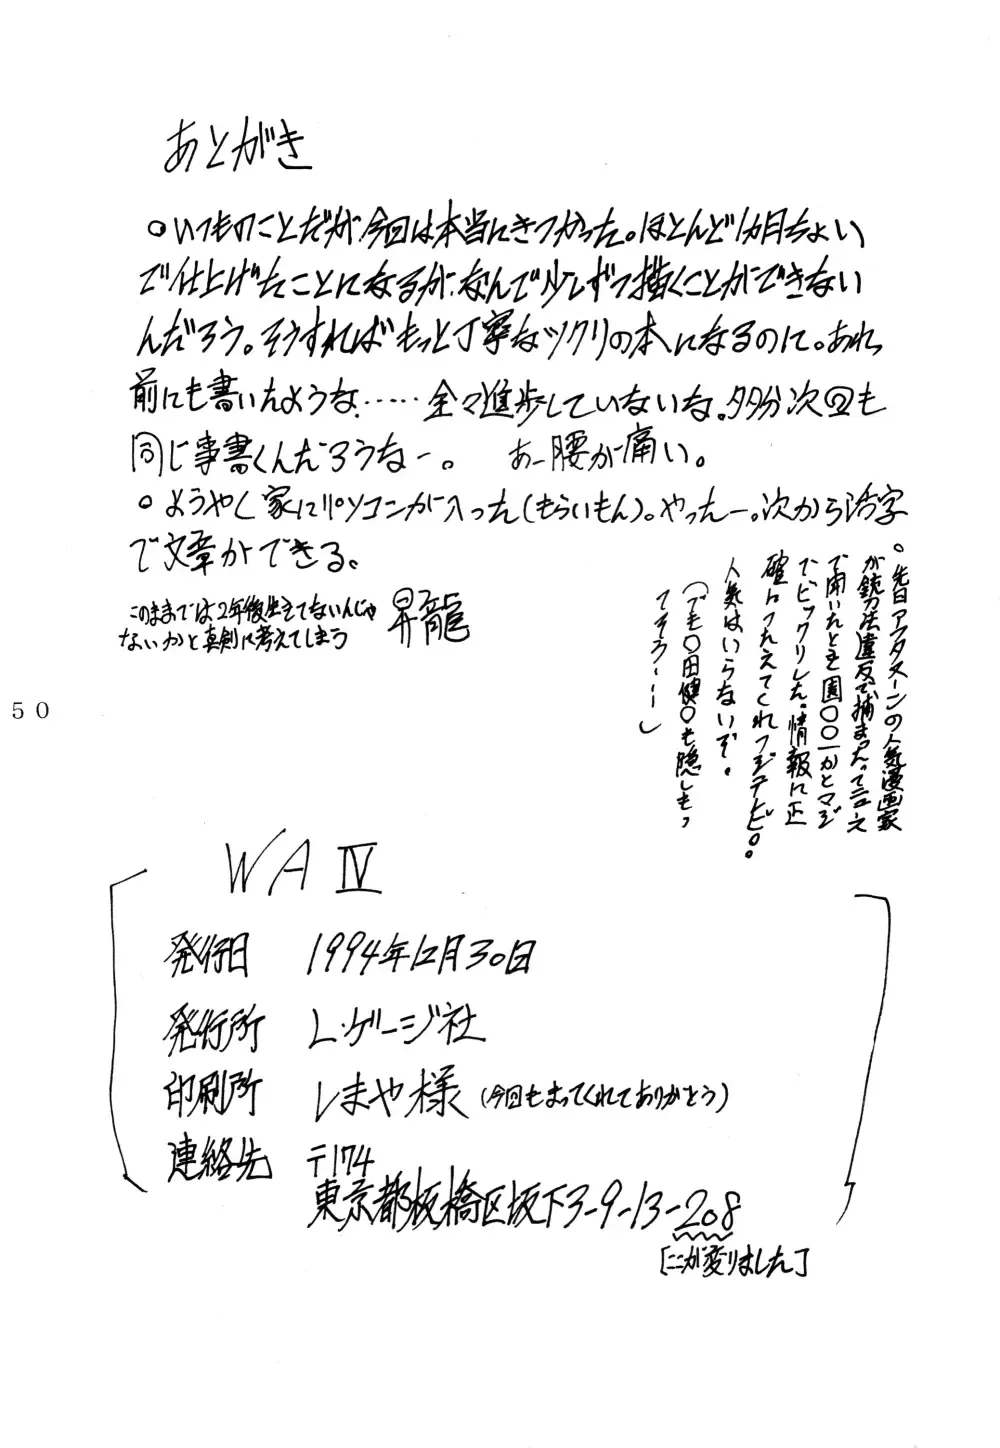 あとがき
○いつものことだが今回は本当にきつかった。ほとんど1カ月ちょい
で仕上げたことになるが、なんで少しずつ描くことができない
んだろう。そうすればもっと丁寧なツクリの本になるのに。あれ
前にも書いたような……全々進歩していないな。多分次回も
同じ事書くんだろうなー。 あー腰が痛い。
○ようやく家にパソコンが入った(もらいもん)。やったー。次から活字
で文章ができる。
このままでは2年後生きてないんじゃ
ないかと真剣に考えてしまう
昇龍
○先日アフタヌーンの人気漫画家
が銃刀法違反で捕まったってニュース
で聞いたとき園○○一かとマジ
でビックリした。情報は正
確につたえてくれフジテレビ○。
人気はいらないぞ。
(でも○田健○も隠しもっ
てそうーー)
50
WA Ⅳ
発行日 1994年12月30日
発行所 L・ゲージ社
印刷所 しまや様 (今回もまってくれてありがとう)
連絡先 〒174
東京都板橋区坂下3-9-13-208
[ここが変りました]